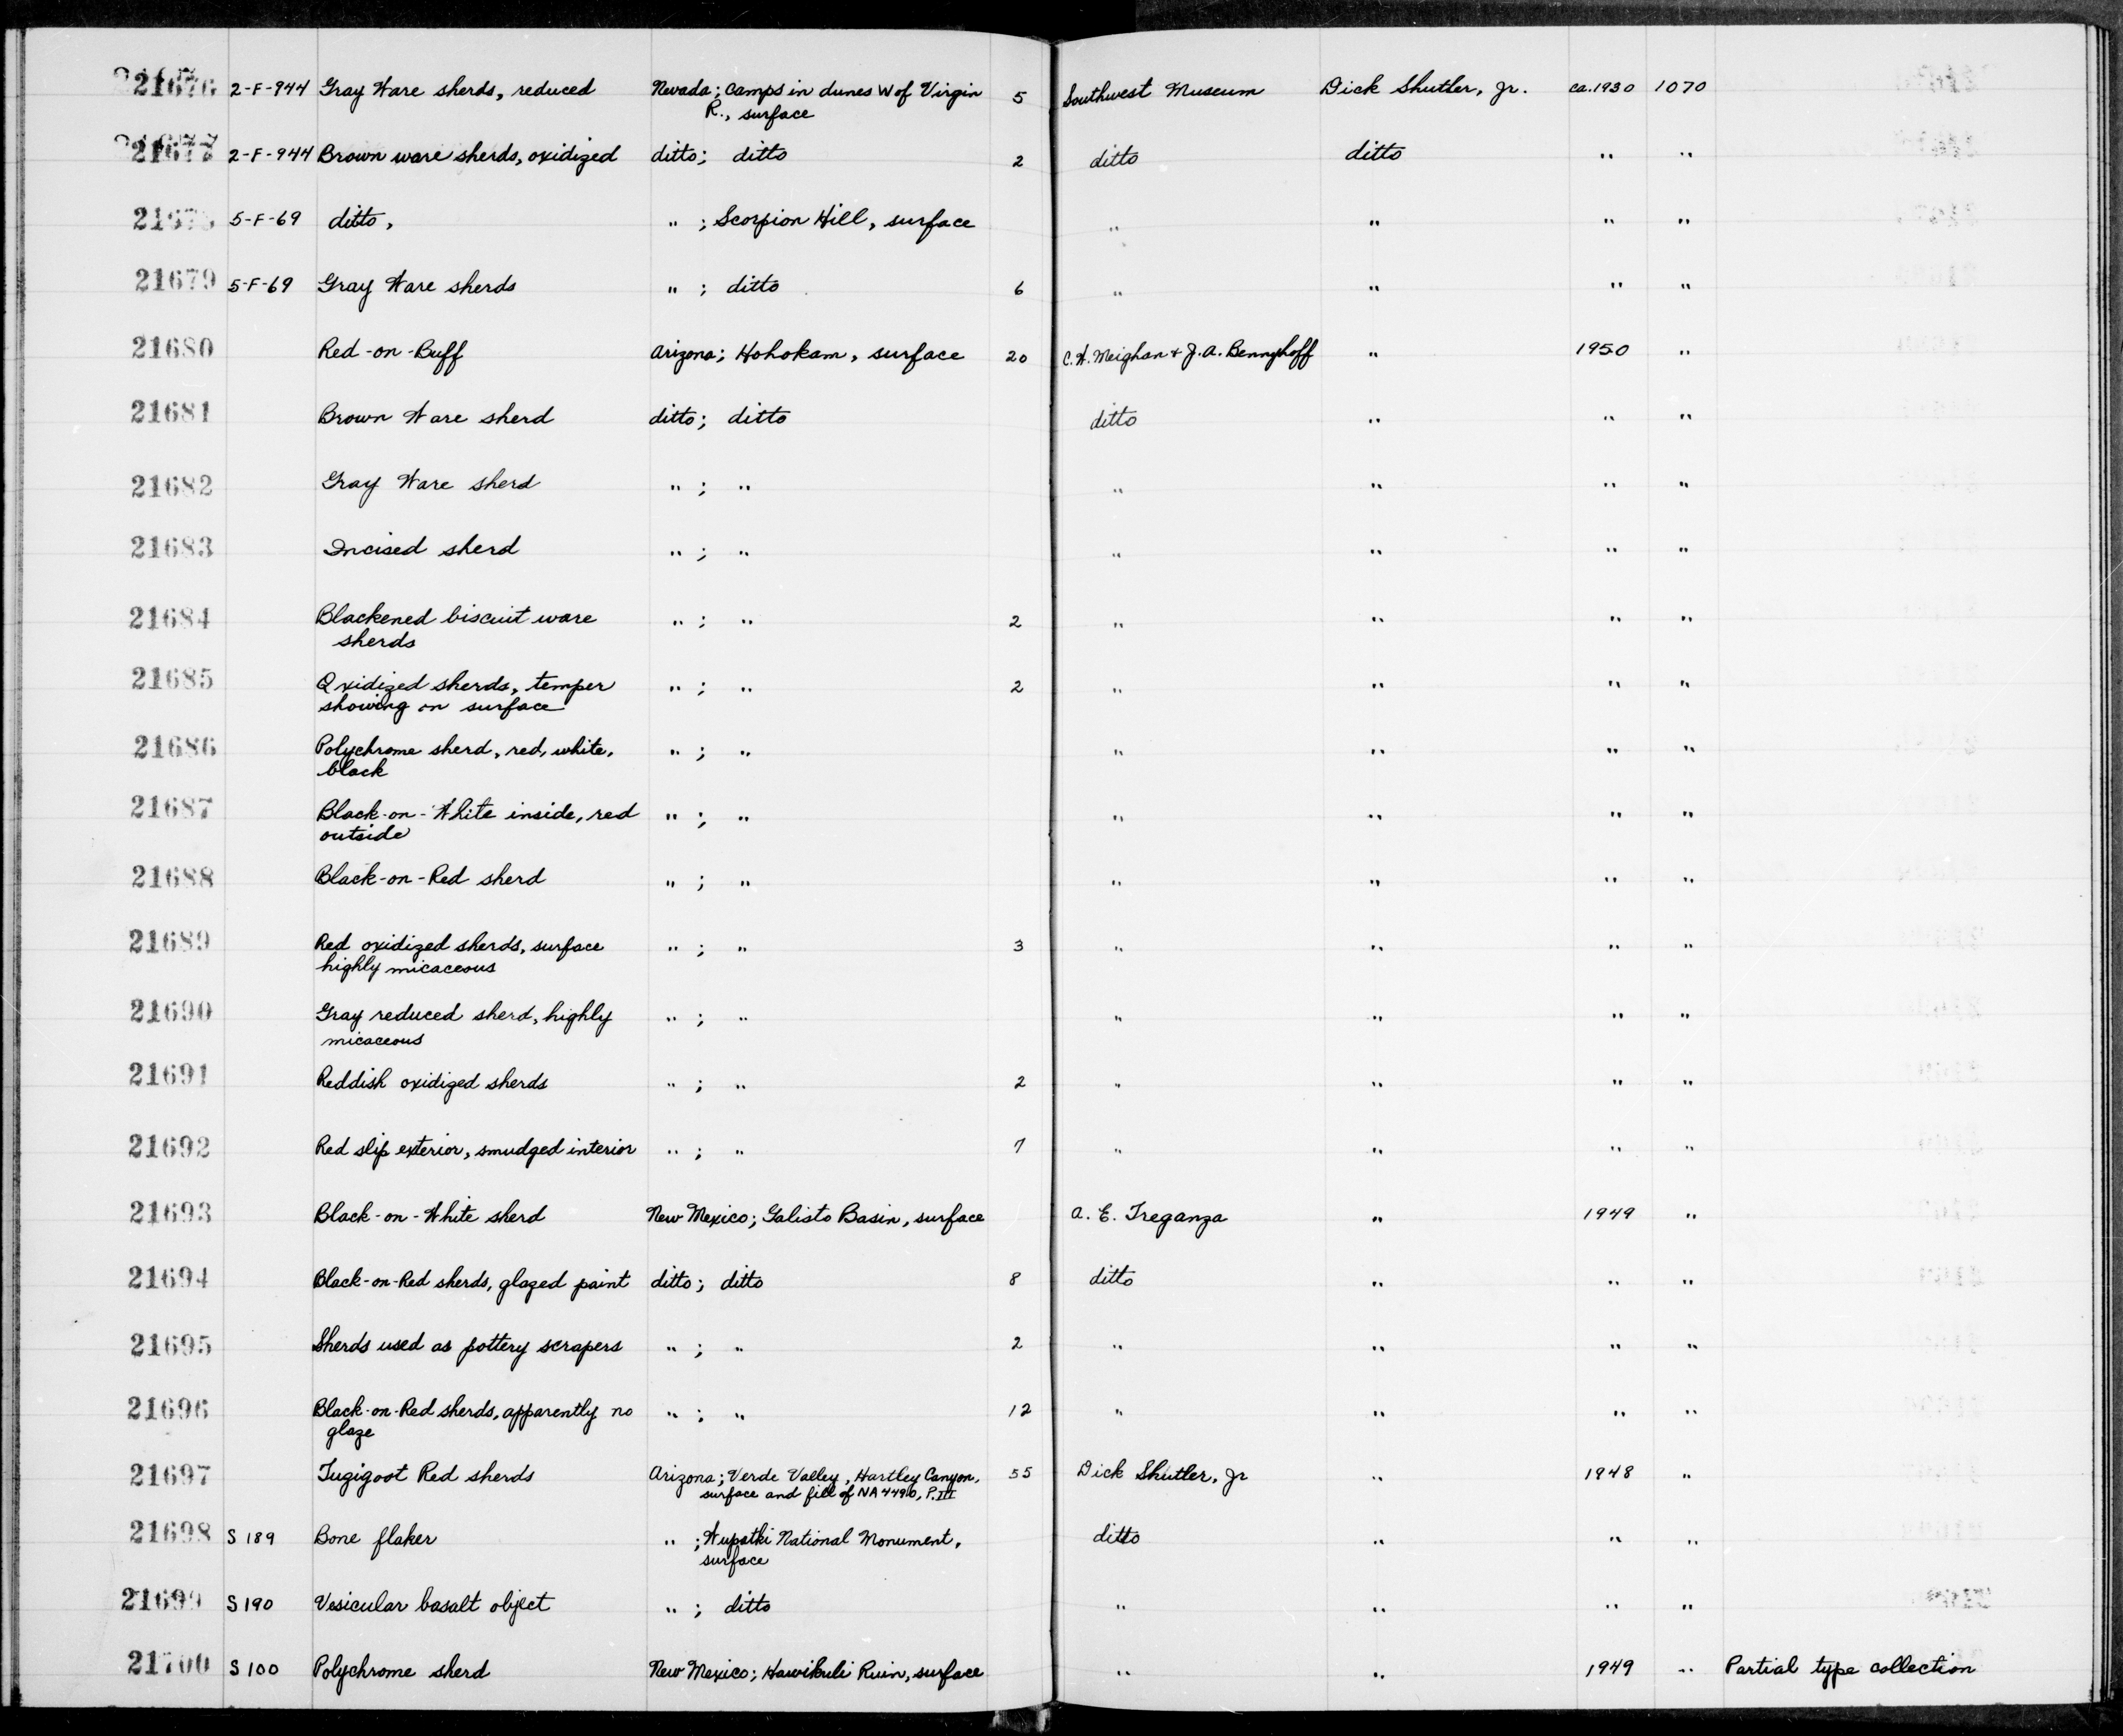 21676 2-F-944 Gray Ware sherds, reduced Nevada; camps in dunes W of Virgin 5 Southwest Museum Dick Shutler, Jr. ca.1930 1070
R., surface
21677 2-F-944 Brown ware sherds, oxidized ditto; ditto 2 ditto ditto " "
21678 5-F-69 ditto, " ; Scorpion Hill, surface " " " "
21679 5-F-69 Gray Ware sherds " ; ditto 6 " " " "
21680 Red-on-Buff Arizona; Hohokam, surface 20 C.W. Meighan & J.A. Bennyhoff " 1950 "
21681 Brown Ware sherd ditto; ditto ditto " " "
21682 Gray Ware sherd " ; " " " " "
21683 Incised sherd " ; " " " " "
21684 Blackened biscuit ware " ; " 2 " " " "
sherds
21685 Oxidized sherds, temper " ; " 2 " " " "
showing on surface
21686 Polychrome sherd, red, white, " ; " " " " "
black
21687 Black-on-White inside, red " ; " " " " "
outside
21688 Black-on-Red sherd " ; " " " " "
21689 Red oxidized sherds, surface " ; " 3 " " " "
highly micaceous
21690 Gray reduced sherd, highly " ; " " " " "
micaceous
21691 Reddish oxidized sherds " ; " 2 " " " "
21692 Red slip exterior, smudged interior " ; " 7 " " " "
21693 Black-on-White sherd New Mexico; Galisto Basin, surface A. E. Treganza " 1949 "
21694 Black-on-Red sherds, glazed paint ditto; ditto 8 ditto " " "
21695 Sherds used as pottery scrapers " ; " 2 " " " "
21696 Black-on-Red sherds, apparently no " ; " 12 " " " "
glaze
21697 Tuzigoot Red sherds Arizona; Verde Valley, Hartley Canyon, 55 Dick Shutler, Jr " 1948 "
surface and fill of NA4490, P.III
21698 S 189 Bone flaker " ; Wupatki National Monument, ditto " " "
surface
21699 S 190 Vesicular basalt object " ; ditto " " " "
21700 S 100 Polychrome sherd New Mexico; Hawikuli Ruin, surface " " 1949 " Partial type collection